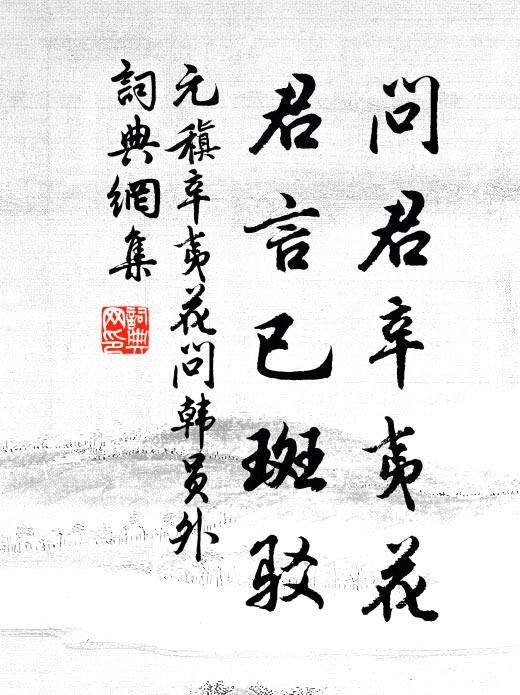 問君辛夷花
君言已斑駁
元稹辛夷花问韩员外
詞典網集
詞典网印